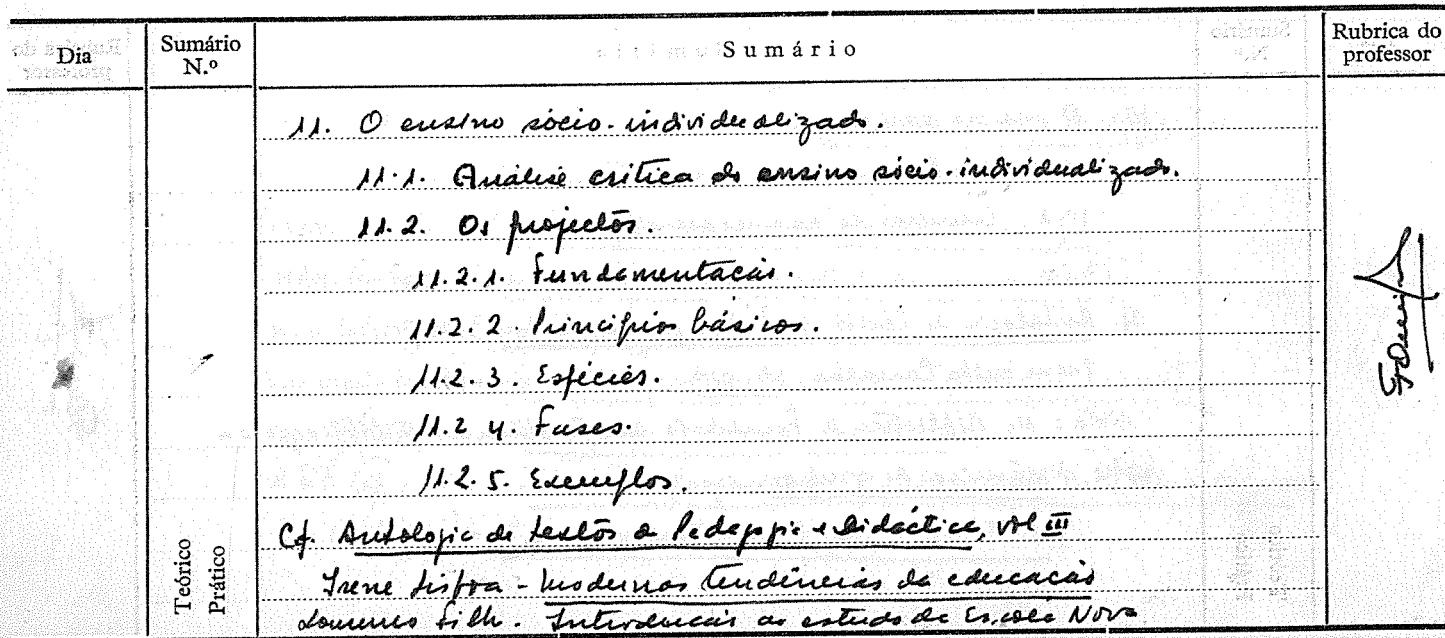 Dia
Sumário N.º
Sumário
Rubrica do professor
11. O ensino sócio-individualizado.
11.1. Análise crítica do ensino sócio-individualizado.
11.2. Os projectos.
11.2.1. Fundamentação.
11.2.2. Princípios básicos.
11.2.3. Espécies.
11.2.4. Fases.
11.2.5. Exemplos.
Teórico
Prático
Cf. Antologia de textos de Pedagogia e Didáctica, vol III
Irene Lisboa - Modernas tendências da educação
Lourenço Filho. Introdução ao estudo da Escola Nova